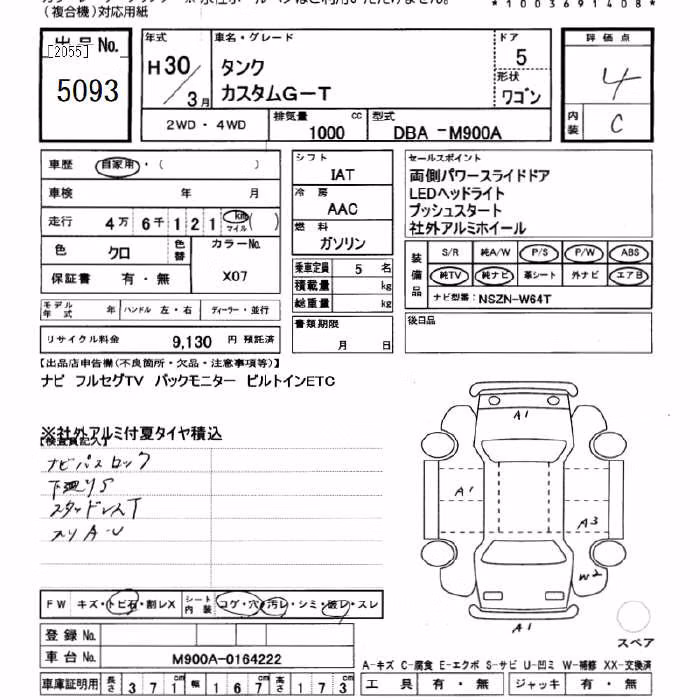 (複合機)対応用紙
*1003691408*
出品No.
[2055]
5093
年式
H30/3月
車名・グレード
タンク
カスタムG-T
ドア
5
形状
ワゴン
評価点
4
内装
C
2WD・4WD
排気量
1000
cc
型式
DBA -M900A
車歴
自家用・( )
車検
年 月
走行
4万6千121
km
マイル
( )
色
クロ
色替
カラーNo.
X07
保証書
有・無
モデル年式
年
ハンドル 左・右
ディーラー・並行
リサイクル料金
9,130 円 預託済
シフト
IAT
冷房
AAC
燃料
ガソリン
乗車定員 5 名
積載量 kg
総重量 kg
書類期限
月 日
セールスポイント
両側パワースライドドア
LEDヘッドライト
プッシュスタート
社外アルミホイール
装備品
S/R 純A/W P/S P/W ABS
純TV 純ナビ 革シート 外ナビ エアB
ナビ型番: NSZN-W64T
後日品
【出品店申告欄(不良箇所・欠品・注意事項等)】
ナビ フルセグTV バックモニター ビルトインETC
※社外アルミ付夏タイヤ積込
【検査員記入】
ナビパスロック
下廻りS
スタッドレスT
スリA-U
A1
A1
A3
W2
A1
スペア
FW
キズ・トビ石・割レX
シート
内装
コゲ・穴・汚レ・シミ・破レ・スレ
登録No.
車台No.
M900A-0164222
車庫証明用
長さ 371cm
幅 167cm
高さ 173cm
A-キズ C-腐食 E-エクボ S-サビ U-凹ミ W-補修 XX-交換済
工具 有・無
ジャッキ 有・無